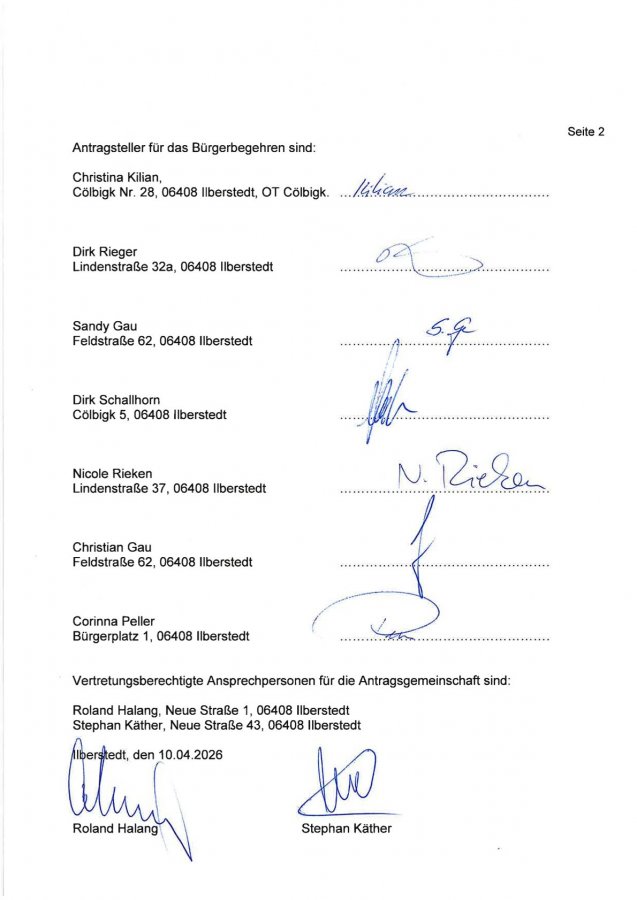 Seite 2
Antragsteller für das Bürgerbegehren sind:
Christina Kilian,
Cölbigk Nr. 28, 06408 Ilberstedt, OT Cölbigk. Kilian
Dirk Rieger
Lindenstraße 32a, 06408 Ilberstedt
Sandy Gau
Feldstraße 62, 06408 Ilberstedt
Dirk Schallhorn
Cölbigk 5, 06408 Ilberstedt
Nicole Rieken
Lindenstraße 37, 06408 Ilberstedt N. Rieken
Christian Gau
Feldstraße 62, 06408 Ilberstedt
Corinna Peller
Bürgerplatz 1, 06408 Ilberstedt
Vertretungsberechtigte Ansprechpersonen für die Antragsgemeinschaft sind:
Roland Halang, Neue Straße 1, 06408 Ilberstedt
Stephan Käther, Neue Straße 43, 06408 Ilberstedt
Ilberstedt, den 10.04.2026
Roland Halang Stephan Käther